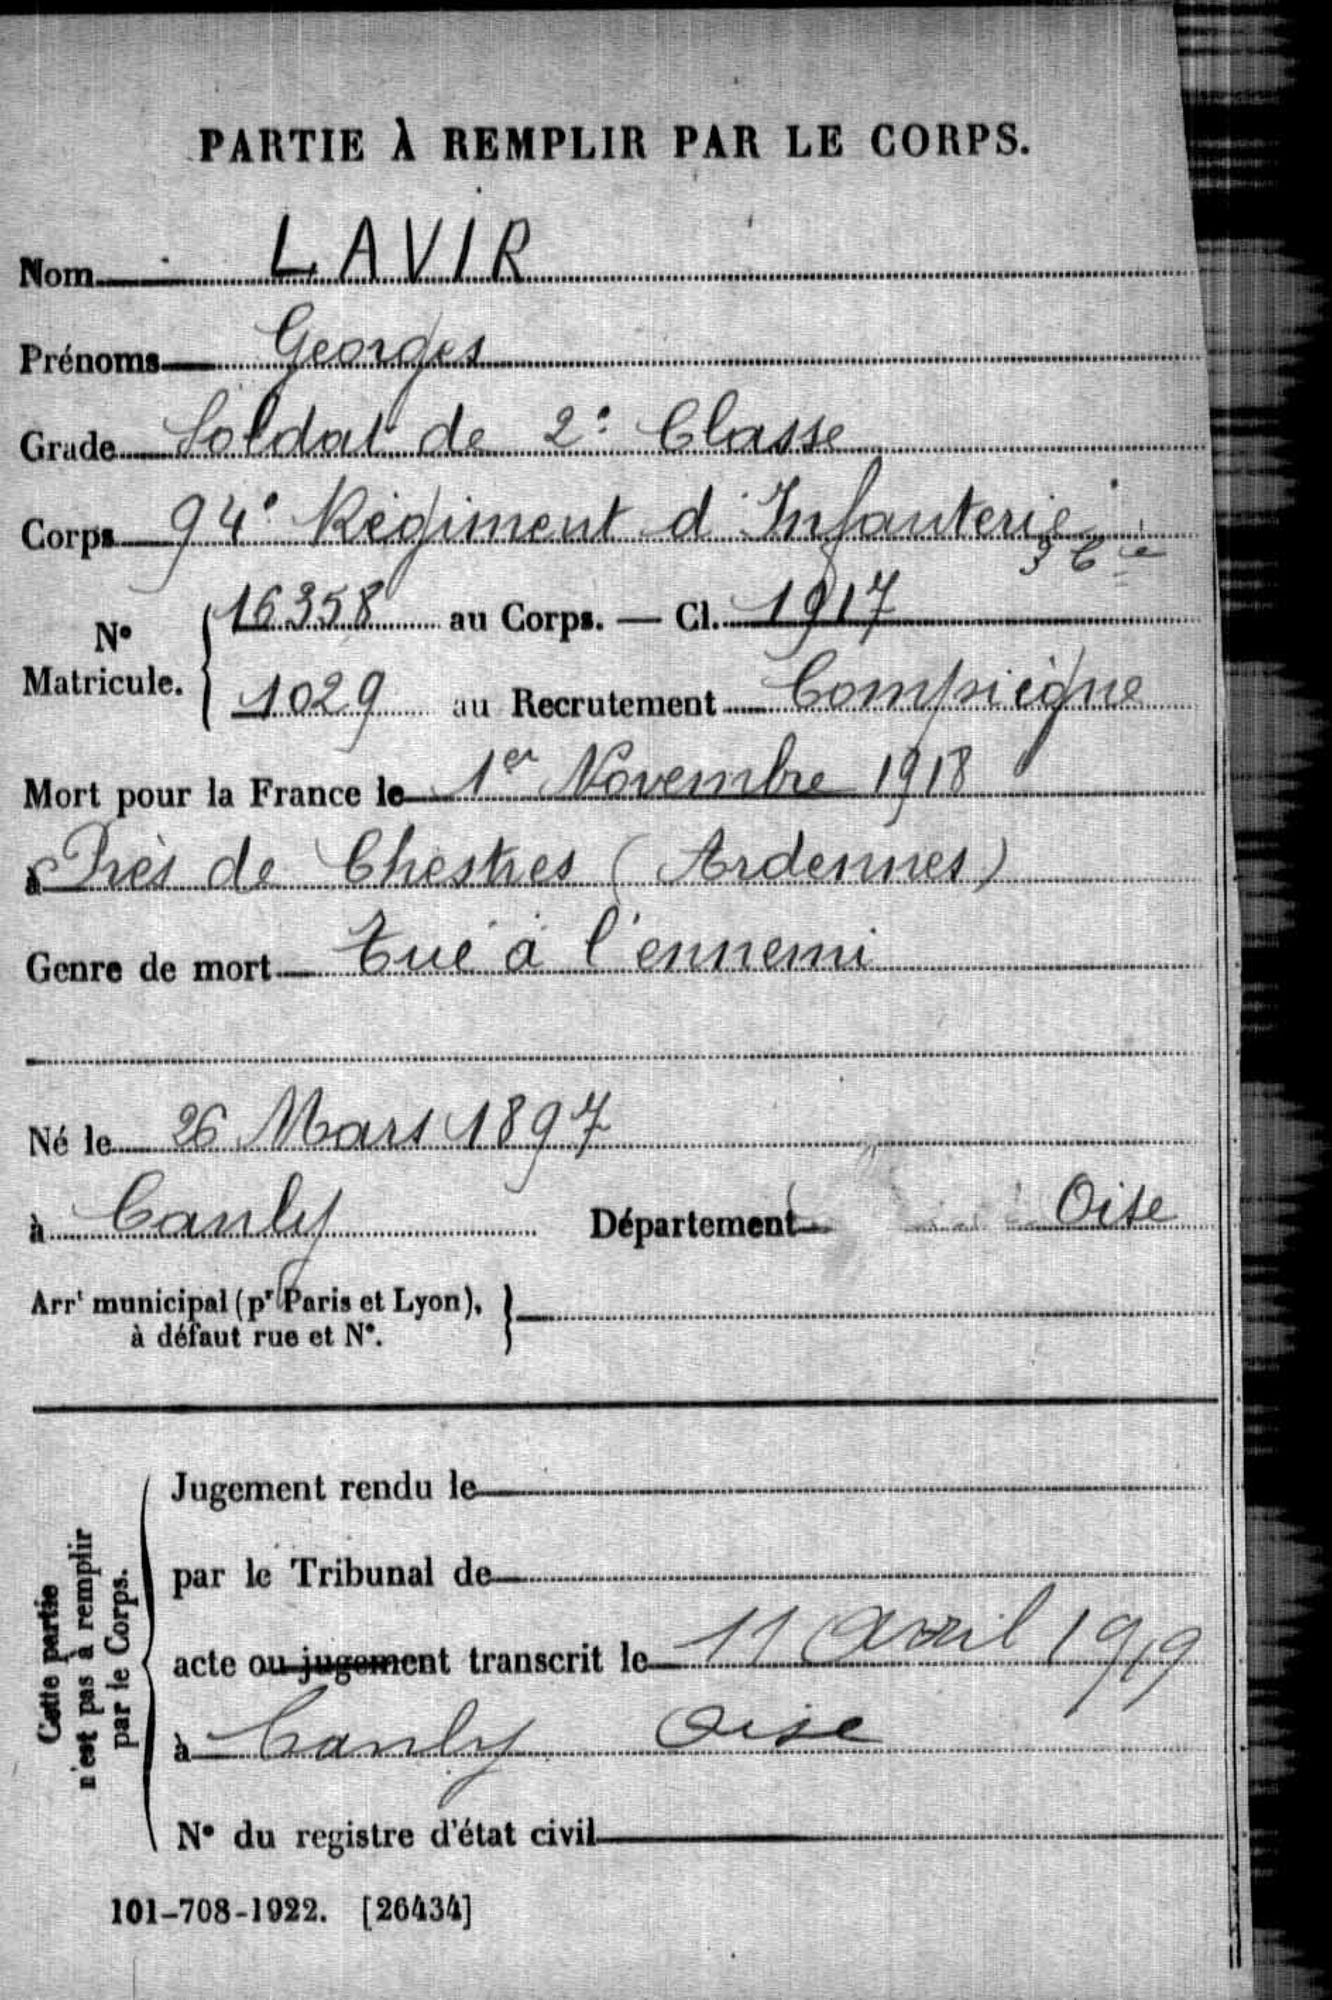 PARTIE À REMPLIR PAR LE CORPS.
Nom LAVIR
Prénoms Georges
Grade Soldat de 2e Classe
Corps 94e Régiment d'Infanterie
3 Cie
N° Matricule. { 16358 au Corps. — Cl. 1917
1029 au Recrutement Compiègne
Mort pour la France le 1er Novembre 1918
à Près de Chestres (Ardennes)
Genre de mort Tué à l'ennemi
Né le 26 Mars 1897
à Canly Département Oise
Arrt municipal (pr Paris et Lyon), }
à défaut rue et N°.
Cette partie
n'est pas à remplir
par le Corps.
Jugement rendu le
par le Tribunal de
acte ou jugement transcrit le 11 avril 1919
à Canly Oise
N° du registre d'état civil
101-708-1922. [26434]